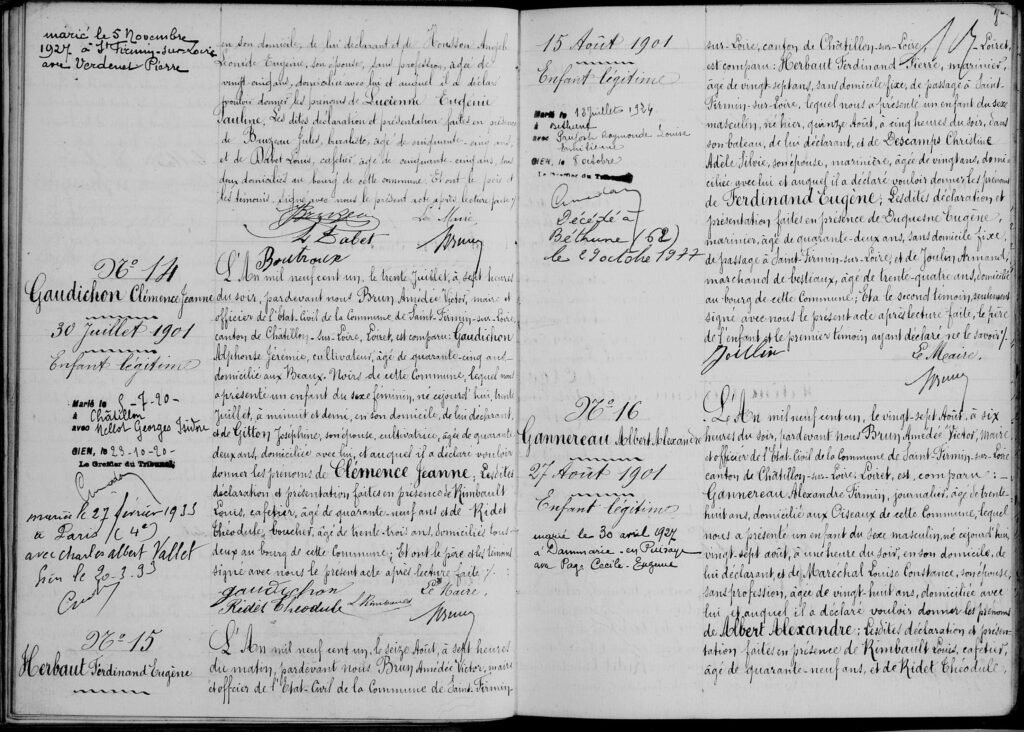 marié le 5 Novembre
1927 à St Firmin-sur-Loire
avec Verdenet Pierre
en son domicile, de lui déclarant et de Housson Angèle
Léonide Eugénie, son épouse, sans profession, âgée de
vingt-cinq ans, domiciliée avec lui et auquel il a déclaré
vouloir donner les prénoms de Lucienne Eugénie
Pauline. Les dites déclaration et présentation faites en présence
de Bruzeau Jules, buraliste, âgé de cinquante-cinq ans,
et de Dabet Louis, cafetier, âgé de cinquante-cinq ans, tous
deux domiciliés au bourg de cette commune. Et ont le père et
les témoins, signé avec nous le présent acte après lecture faite /.
Le Maire
L Dabet
Brun
Boutroux
No 14
Gaudichon Clémence Jeanne
30 Juillet 1901
Enfant légitime
Marié le 5-7-20-
à Châtillon
avec Mellot Georges Isidore
GIEN, le 23-10-20-
Le Greffier du Tribunal,
mariée le 27 février 1933
à Paris (4e)
avec Charles Albert Vallet
Gien le 20-3-33
L'An mil neuf cent un, le trente Juillet, à sept heures
du soir, pardevant nous Brun Amédée Victor, maire et
officier de l'Etat-Civil de la Commune de Saint-Firmin-sur-Loire,
canton de Châtillon-sur-Loire, Loiret, est comparu: Gaudichon
Alphonse Jérémie, cultivateur, âgé de quarante-cinq ans
domicilié aux Beaux-Noirs de cette Commune, lequel nous
a présenté un enfant du sexe féminin, né cejourd'hui, trente
Juillet, à minuit et demi, en son domicile, de lui déclarant,
et de Gitton Joséphine, son épouse, cultivatrice, âgée de quarante
deux ans, domiciliée avec lui, et auquel il a déclaré vouloir
donner les prénoms de Clémence Jeanne; Lesdites
déclaration et présentation faites en présence de Rimbault
Louis, cafetier, âgé de quarante-neuf ans et de Ridet
Théodule, boucher, âgé de trente-trois ans, domiciliés tous
deux au bourg de cette Commune; Et ont le père et les témoins
signé avec nous le présent acte après lecture faite /.
gaudichon
Le Maire.
Ridet Théodule L Rimbault
Brun
No 15
Herbaut Ferdinand Eugène
L'An mil neuf cent un, le seize Août, à sept heures
du matin, pardevant nous Brun Amédée Victor, maire
et officier de l'Etat-Civil de la Commune de Saint-Firmin-
15 Août 1901
Enfant légitime
Marié le 12 Juillet 1924
à Béthune
avec Raymonde Louise
GIEN, le 8 octobre
Le Greffier du Tribunal
Décédé à
Béthune (62)
le 29 octobre 1977
sur-Loire, canton de Châtillon-sur-Loire, Loiret,
est comparu: Herbaut Ferdinand Pierre, marinier,
âgé de vingt-sept ans, sans domicile fixe, de passage à Saint-
Firmin-sur-Loire, lequel nous a présenté un enfant du sexe
masculin, né hier, quinze Août, à cinq heures du soir, dans
son bateau, de lui déclarant, et de Descamps Christine
Adèle Silvie, son épouse, marinière, âgée de vingt ans, domi-
ciliée avec lui et auquel il a déclaré vouloir donner les prénoms
de Ferdinand Eugène; Lesdites déclaration et
présentation faites en présence de Duquesne Eugène,
marinier, âgé de quarante-deux ans, sans domicile fixe,
de passage à Saint-Firmin-sur-Loire; et de Joulin Armand,
marchand de bestiaux, âgé de trente-quatre ans, domicilié
au bourg de cette Commune; Et a le second témoin, seulement
signé avec nous le présent acte après lecture faite, le père
de l'enfant et le premier témoin ayant déclaré ne le savoir /.
Joullin
Le Maire.
Brun
No 16
Gannereau Albert Alexandre
27 Août 1901
Enfant légitime
marié le 30 avril 1927
à Dammarie-en-Puisaye
avec Page Cécile-Eugénie
L'An mil neuf cent un, le vingt-sept Août, à six
heures du soir, pardevant nous Brun Amédée Victor, maire
et officier de l'Etat-Civil de la Commune de Saint-Firmin-sur-Loire
canton de Châtillon-sur-Loire, Loiret, est comparu :
Gannereau Alexandre Firmin, journalier, âgé de trente-
huit ans, domicilié aux Oiseaux de cette Commune, lequel
nous a présenté un enfant du sexe masculin, né cejourd'hui,
vingt-sept août, à une heure du soir, en son domicile, de
lui déclarant, et de Maréchal Louise Constance, son épouse,
sans profession, âgée de vingt-huit ans, domiciliée avec
lui et auquel il a déclaré vouloir donner les prénoms
de Albert Alexandre; Lesdites déclaration et présen-
tation faites en présence de Rimbault Louis, cafetier,
âgé de quarante-neuf ans, et de Ridet Théodule,